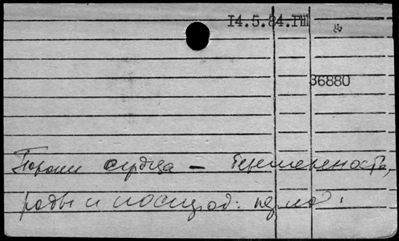 14.5.84.ГШ
36880
Пороки сердца - беременность,
роды и послерод. период.